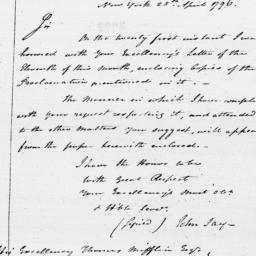 New York 25th April 1796.
Sir
On the twenty first instant I was
honored with your Excellency's Letter of the
Eleventh of this Month, enclosing Copies of the
Proclamation mentioned in it.
The Manner in which I have complied
with your request respecting it, and attended
to the other Matters you suggest, will appear
from the paper herewith enclosed.
I have the Honor to be
with Great Respect
Your Excellency's most obt
& Hble Servt
(Signed) John Jay
His Excellency Thomas Mifflin Esqr